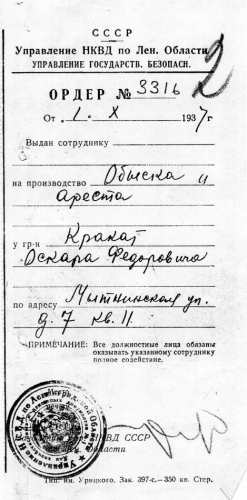 СССР
Управление НКВД по Лен. Области
УПРАВЛЕНИЕ ГОСУДАРСТВ. БЕЗОПАСН.
2
ОРДЕР № 3316
От 1 - X 1937 г
Выдан сотруднику
на производство Обыска и
Ареста
у гр-н Кракат
Оскара Федоровича
по адресу Мытнинская ул.
д. 7 кв. 11.
ПРИМЕЧАНИЕ: Все должностные лица обязаны
оказывать указанному сотруднику
полное содействие.
НКВД СССР
Области
Тип. им. Урицкого. Зак. 397-с.—350 кв. Стер.